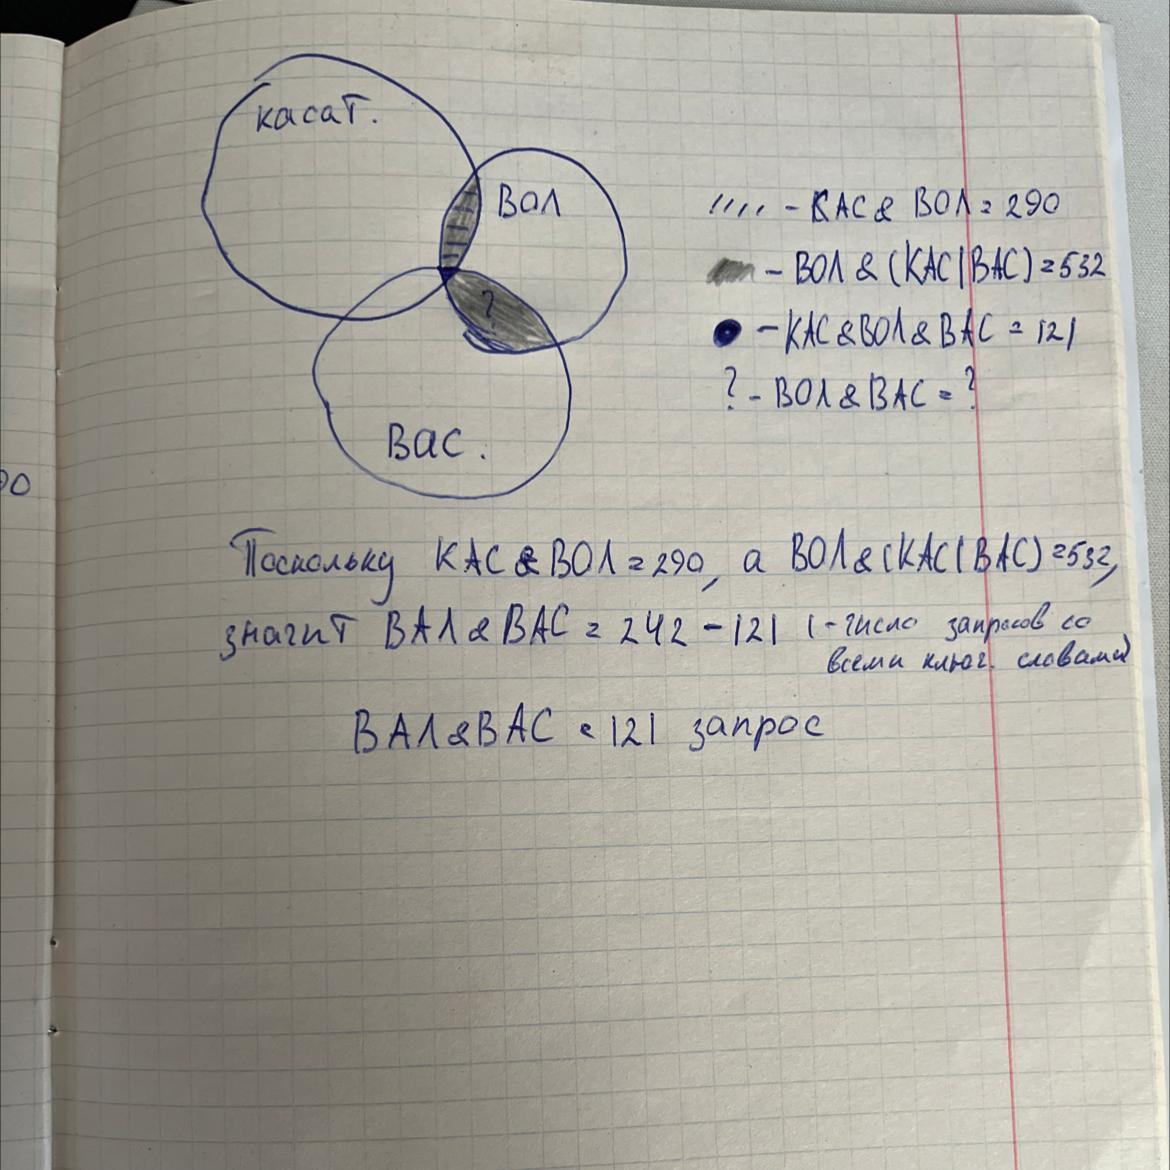 касат.
ВОЛ
?
Вас.
'''' - КАС & ВОЛ = 290
- ВОЛ & (КАС|ВАС) = 532
- КАС & ВОЛ & ВАС = 121
? - ВОЛ & ВАС = ?
Поскольку КАС & ВОЛ = 290, а ВОЛ & (КАС|ВАС) = 532,
значит ВАЛ & ВАС = 242 - 121 (-число запросов со
всеми ключ. словами)
ВАЛ & ВАС = 121 запрос